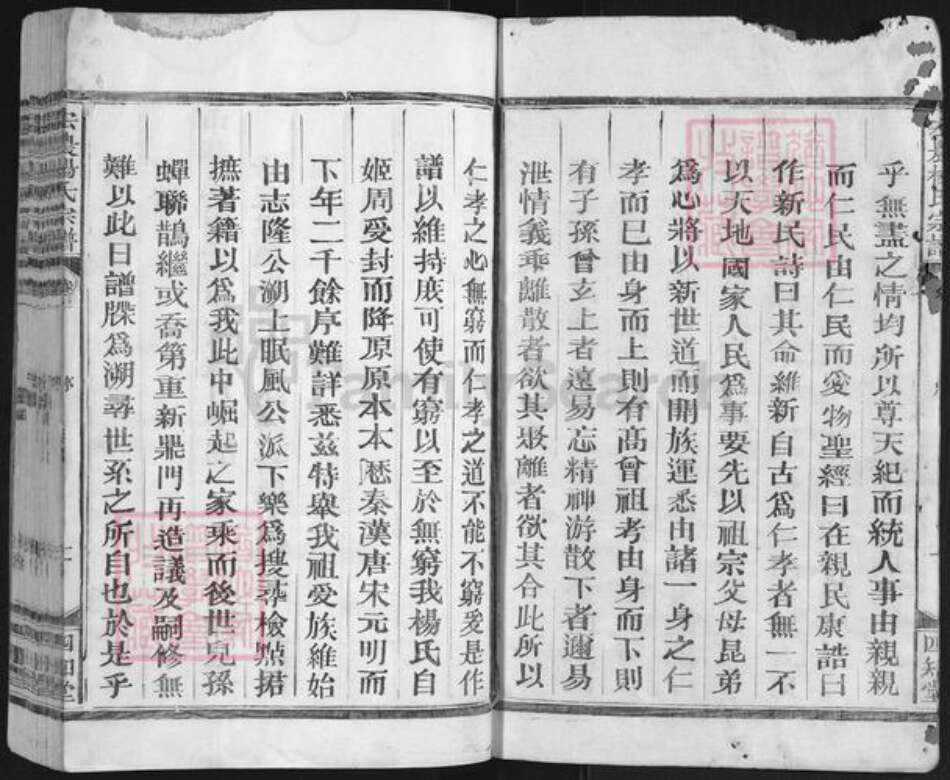 乎無盡之情均所以尊天紀而統人事由親親
而仁民由仁民而愛物聖經曰在親民康誥曰
作新民詩曰其命維新自古爲仁孝者無一不
以天地國家人民爲事要先以祖宗父母昆弟
爲心將以新世道而開族運悉由諸一身之仁
孝而已由身而上則有高曾祖考由身而下則
有子孫曾玄上者遠易忘精神游散下者邇易
泄情義乖離散者欲其聚離者欲其合此所以
仁孝之心無窮而仁孝之道不能不窮爰是作
譜以維持庶可使有窮以至於無窮我楊氏自
姬周受封而降原原本本歷秦漢唐宋元明而
下年二千餘序難詳悉茲特舉我祖愛族維始
由志隆公溯上眠風公派下樂爲搜尋檢點捃
摭著籍以爲我此中崛起之家乘而後世兒孫
蟬聯鵲繼或喬第重新鼎門再造議及嗣修無
難以此日譜牒爲溯尋世系之所自也於是乎
楊氏宗譜
四知堂
FamilySearch